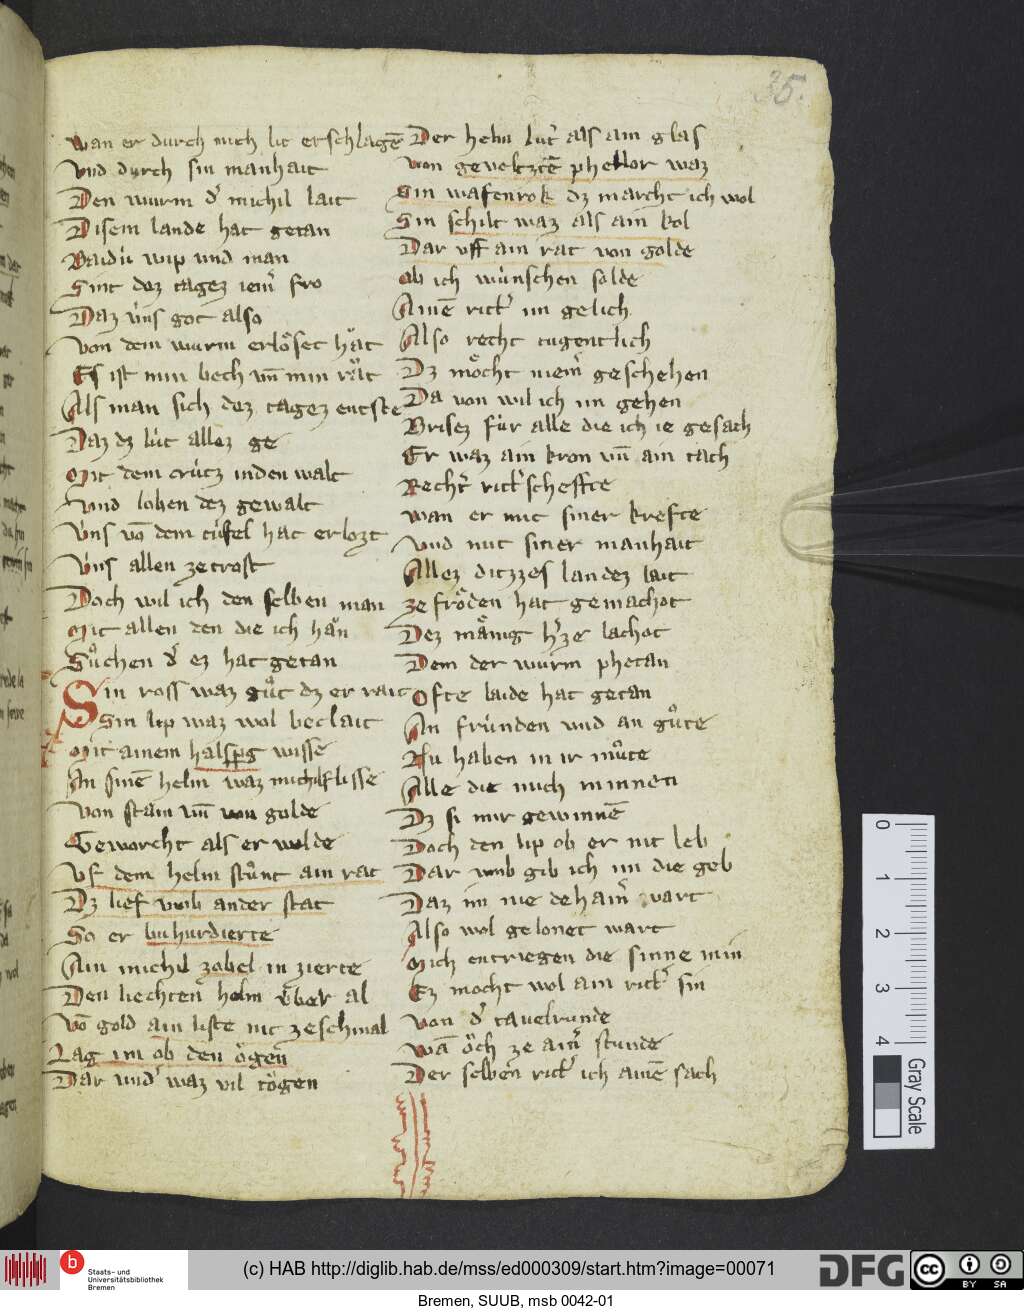 35.
wan er durch mich lit erschlagē
Vnd dyrch sin manhait
Den wurm d' michil lait
Disem lande hat getan
Baidú wip vnd man
Sint dez tagez iem' fro
Daz v́ns got also
Von dem wurm erlöset hăt
Es ist min bech vn̄ min răt
Als man sich dez tagez entste
Daz dz lút allez ge
Mit dem crútz inden walt
Vnd loben dez gewalt
V́ns vō dem túfel hat erlozt
V́ns allen ze trost
Doch wil ich den selben man
Mit allen den die ich hăn
Sůchen d' ez hat getan
Sin ross waz gůt dz er rait
Sin lip waz wol beclait
Mit ainem halspg wisse
An sinē helm waz michil flisse
Von stain vn̄ von golde
Geworcht als er wolde
Vf dem helm stůnt ain rat
Dz lief vmb ander stat
So er buhurdierte
Ain michil zobel in zierte
Den liechten helm v́ber al
Vō gold ain liste nit ze schmal
Lag im ob den ögen
Dar vnd' waz vil tögen
Der helm lut' als ain glas
Von geveltztē phellor waz
Sin wafenrok dz marcht ich wol
Sin schilt waz als ain kol
Dar vff ain rat von golde
Ob ich wúnschen solde
Ainē ritt' im gelich
Also recht tugentlich
Dz möcht niem' geschehen
Da von wil ich im gehen
Brisez fúr alle die ich ie gesach
Er waz ain kron vn̄ ain tach
Recht' ritt'scheffte
Wan er mit siner krefte
Vnd mit siner manhait
Allez ditzzes landez lait
ze fröden hat gemachot
Dez mănig h'ze lachot
Dem der wurm phetan
Ofte laide hat getan
An frúnden vnd an gůte
Nu haben in ir můte
Alle die mich minnen
Dz si mir gewinnē
Doch den lip ob er nit leb
Dar vmb gib ich im die geb
Daz im nie dehain' wart
Also wol gelonet wart
Mich entriegen die sinne min
Ez mocht wol ain ritt' sin
Von d' tauelrunde
Wā öch ze ain' stunde
Der selben ritt' ich ainē sach
0
1
2
3
4
Gray Scale
b
Staats- und
Universitätsbibliothek
Bremen
(c) HAB http://diglib.hab.de/mss/ed000309/start.htm?image=00071
DFG
cc
BY SA
Bremen, SUUB, msb 0042-01